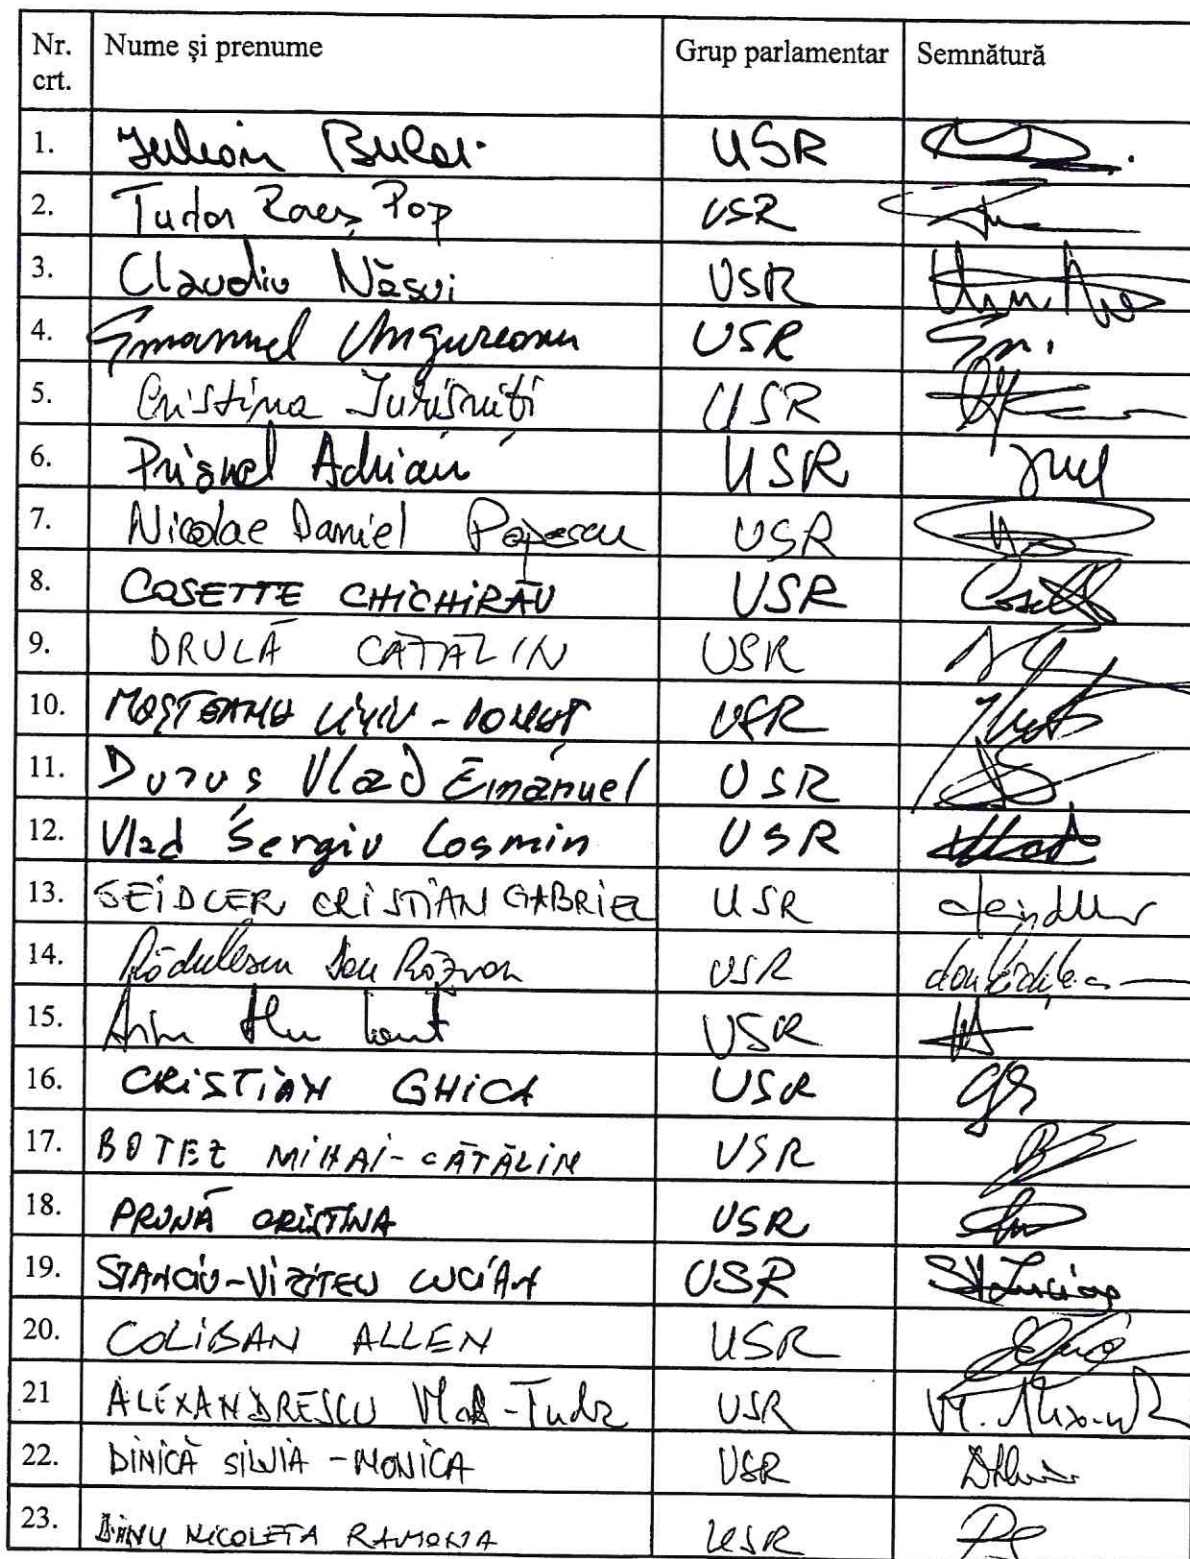 Nr. crt. Nume și prenume Grup parlamentar Semnătură
1. Iulian Bulai USR
2. Tudor Rareș Pop USR
3. Claudiu Năsui USR
4. Emanuel Ungureanu USR Em.
5. Cristina Iurișniți USR
6. Prisnel Adrian USR
7. Nicolae Daniel Popescu USR
8. COSETTE CHICHIRĂU USR Cosette
9. DRULĂ CĂTĂLIN USR
10. MOȘTEANU LIVIU-IONUȚ USR
11. Duruș Vlad Emanuel USR
12. Vlad Sergiu Cosmin USR Vlad
13. SEIDLER CRISTIAN GABRIEL USR Seidler
14. Rădulescu Dan Răzvan USR
15. USR
16. CRISTIAN GHICA USR
17. BOTEZ MIHAI-CĂTĂLIN USR
18. PRUNĂ CRISTINA USR
19. STANCIU-VIZITEU LUCIAN USR
20. COLIBAN ALLEN USR
21 ALEXANDRESCU Vlad-Tudor USR
22. DINICĂ SILVIA-MONICA USR
23. DINU NICOLETA RAMONA USR